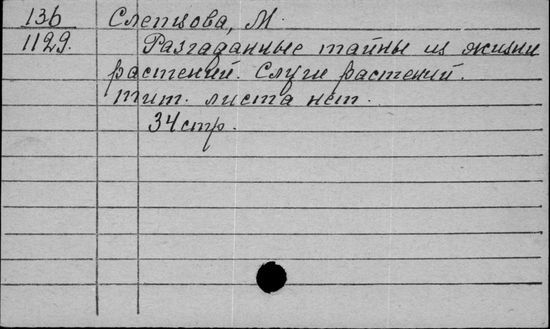 136 Слепцова, М.
1129. Разгаданные тайны из жизни
растений. Слуги растений.
тит. листа нет.
34 стр.